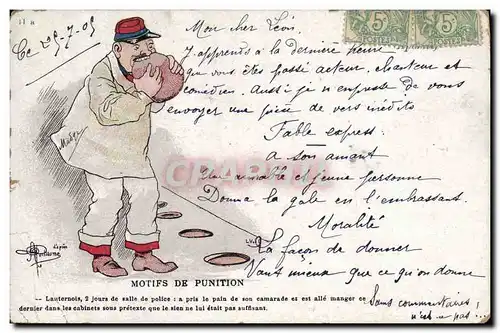 Ce 25-7-05
Mon cher Léon
J'apprends à la dernière heure
que vous êtes passé acteur, chanteur et
comédien. Aussi je m'empresse de vous
envoyer une pièce de vers inédits
Fable express.
A son amant
Une aimable et jeune personne
Donna la gale en l'embrassant.
Moralité
La façon de donner
Vaut mieux que ce qu'on donne
Sans commentaires
n'est-ce pas...
5c 5c
CPARAMA
MOTIFS DE PUNITION
— Lauternois, 2 jours de salle de police : a pris le pain de son camarade et est allé manger ce
dernier dans les cabinets sous prétexte que le sien ne lui était pas suffisant.